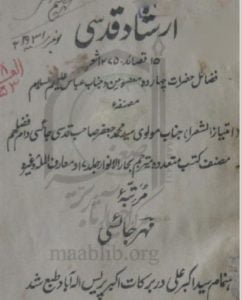 ارشاد قدسی
۱۵ قصائد ۶۷۵ شعر
فضائل حضرات چهارده معصومین و جناب عباس علیہم السلام
مصنفہ
امتیاز الشعرا، جناب مولوی سید محمد جعفر صاحب قدسی جائسی دام فضلہم
مصنف کتب متعددہ و مترجم بحار الانوار جلد ۱۷ و معارف الملۃ وغیرہ
مرتبہ
مہر جائسی
maablib.org
باہتمام سید اکبر علی در برکات اکبر پریس الہ آباد طبع شد